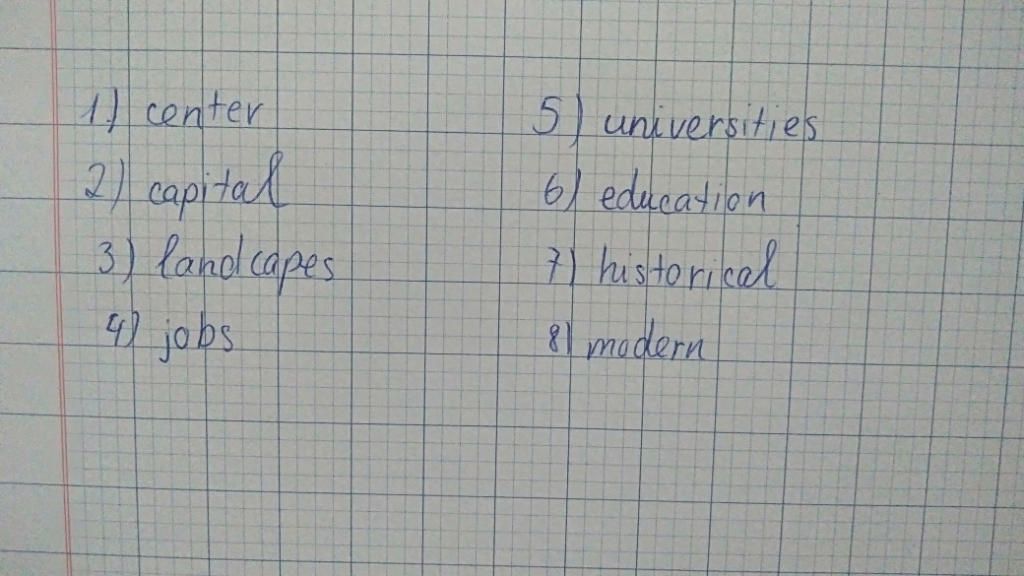 1) center
2) capital
3) landcapes
4) jobs
5) universities
6) education
7) historical
8) modern